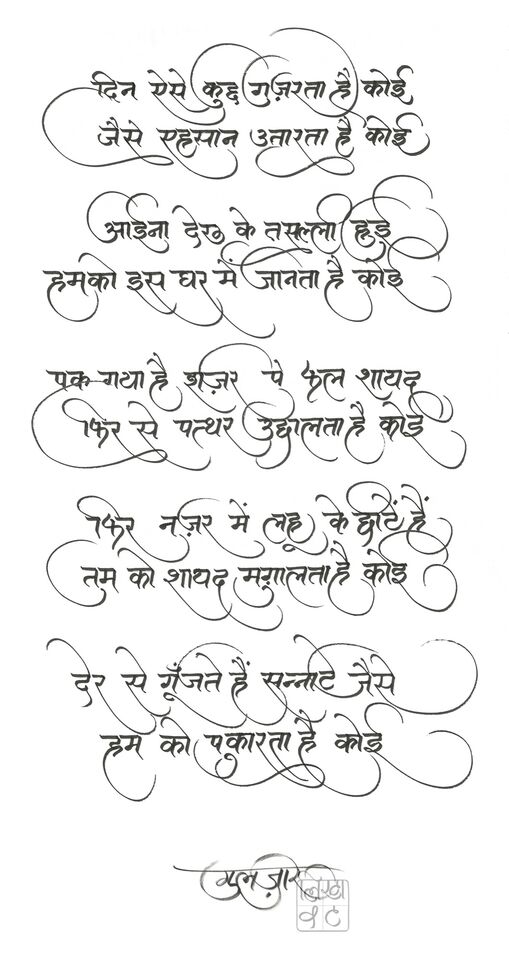 दिन ऐसे कुछ गुज़रता है कोई
जैसे एहसान उतारता है कोई
आईना देख के तसल्ली हुई
हमको इस घर में जानता है कोई
पक गया है शज़र पे फल शायद
फिर से पत्थर उछालता है कोई
फिर नज़र में लहू के छींटें हैं
तुम को शायद मुग़ालता है कोई
देर से गूँजते हैं सन्नाटे जैसे
हम को पुकारता है कोई
गुलज़ार